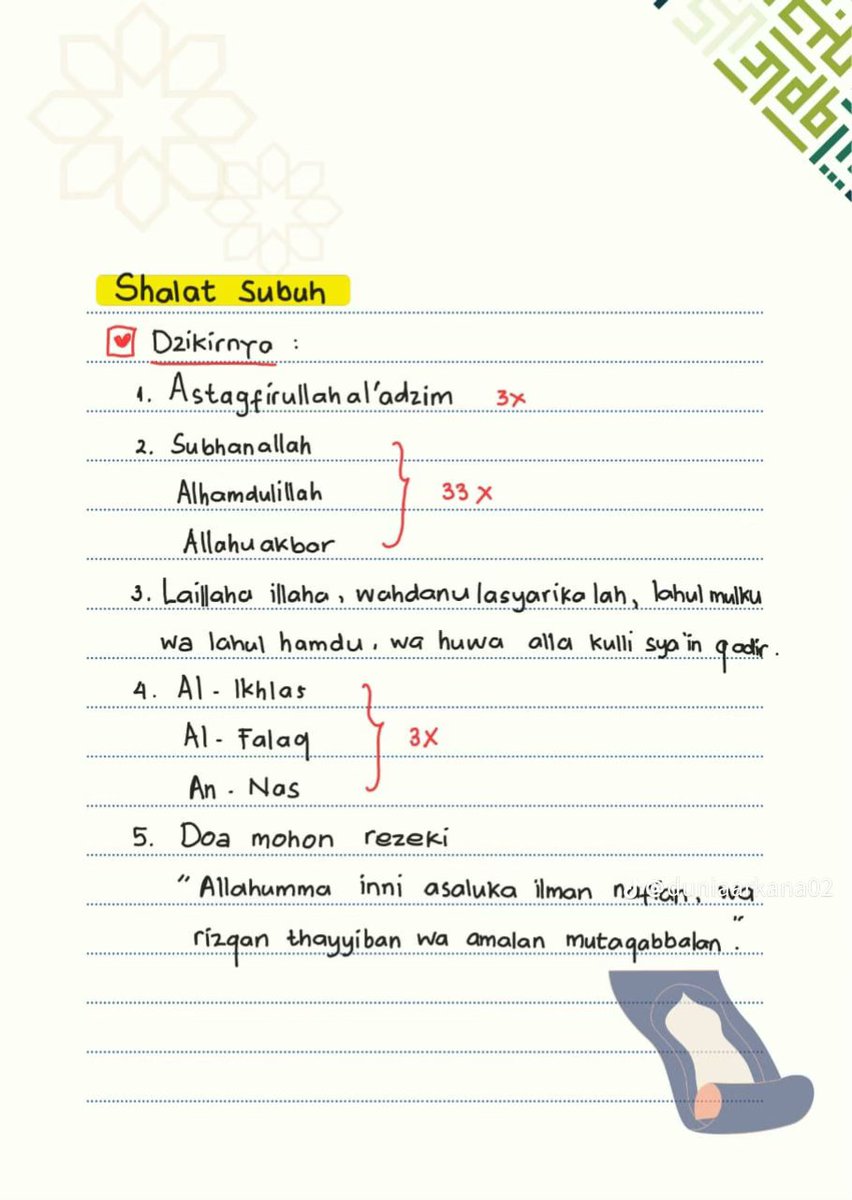 Shalat Subuh
Dzikirnya :
1. Astagfirullahal'adzim 3x
2. Subhanallah
Alhamdulillah 33 x
Allahu akbar
3. Laillaha illaha, wahdanu lasyarika lah, lahul mulku
wa lahul hamdu, wa huwa alla kulli sya'in qadir.
4. Al - Ikhlas
Al - Falaq 3x
An - Nas
5. Doa mohon rezeki
"Allahumma inni asaluka ilman wa
rizqan thayyiban wa amalan mutaqabbalan."